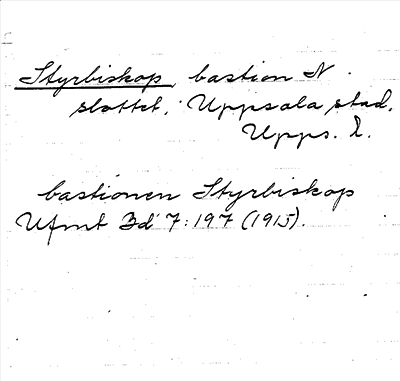 Styrbiskop, bastion N
slottet, Uppsala stad.
Upps. l.
bastionen Styrbiskop
Ufmt Bd 7: 197 (1915).